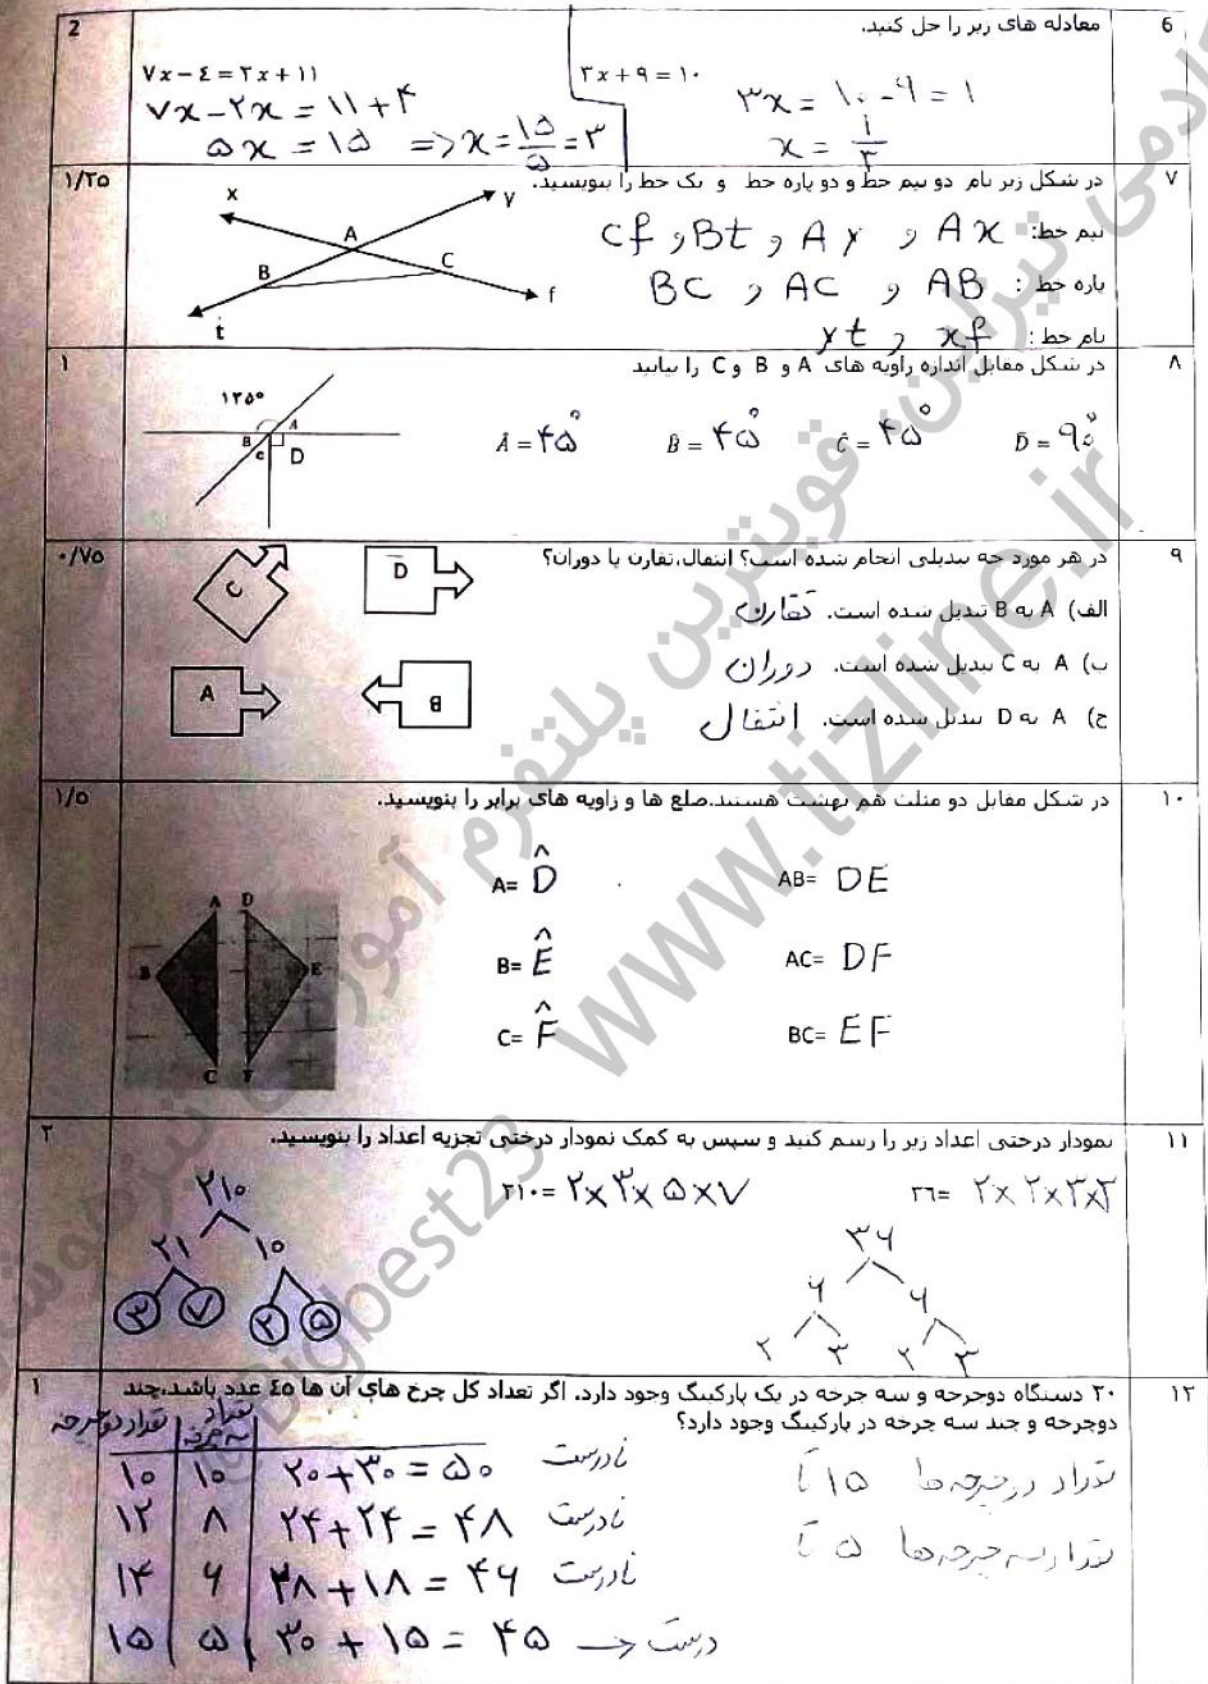 6 معادله های زیر را حل کنید. 2
۷x − ٤ = ۲x + ۱۱
۷x − ۲x = ۱۱ + ۴
۵x = ۱۵ => x = ۱۵/۵ = ۳
۳x + ۹ = ۱۰
۳x = ۱۰ − ۹ = ۱
x = ۱/۳
۷ در شکل زیر نام دو نیم خط و دو پاره خط و یک خط را بنویسید. ۱/۲۵
نیم خط: Ax و Ay و Bt و Cf
پاره خط : AB و AC و BC
نام خط : xf و yt
x y A B C f t
۸ در شکل مقابل اندازه زاویه های A و B و C را بیابید ۱
۱۳۵° A B C D
Â = ۴۵° B = ۴۵° Ĉ = ۴۵° D = ۹۰°
۹ در هر مورد چه تبدیلی انجام شده است؟ انتقال،تقارن یا دوران؟ ۰/۷۵
الف) A به B تبدیل شده است. تقارن
ب) A به C تبدیل شده است. دوران
ج) A به D تبدیل شده است. انتقال
C D
A B
۱۰ در شکل مقابل دو مثلث هم نهشت هستند.ضلع ها و زاویه های برابر را بنویسید. ۱/۵
A= D̂ AB= DE
B= Ê AC= DF
C= F̂ BC= EF
A D
B E
C F
۱۱ نمودار درختی اعداد زیر را رسم کنید و سپس به کمک نمودار درختی تجزیه اعداد را بنویسید. ۲
۳٦= ۲×۲×۳×۳
۳۶
۶ ۶
۲ ۳ ۲ ۳
۲۱۰= ۲×۳×۵×۷
۲۱۰
۲۱ ۱۰
۳ ۷ ۲ ۵
۱۲ ۲۰ دستگاه دوچرخه و سه چرخه در یک پارکینگ وجود دارد. اگر تعداد کل چرخ های آن ها ٤٥ عدد باشد،چند ۱
دوچرخه و چند سه چرخه در پارکینگ وجود دارد؟
تعداد دوچرخه ها ۱۵ تا
تعداد سه چرخه ها ۵ تا
تعداد دوچرخه تعداد سه چرخه
۱۰ ۱۰ ۲۰+۳۰ = ۵۰ نادرست
۱۲ ۸ ۲۴+۲۴ = ۴۸ نادرست
۱۴ ۶ ۲۸+۱۸ = ۴۶ نادرست
۱۵ ۵ ۳۰ + ۱۵ = ۴۵ → درست
قویترین پلتفرم
www.tizline.ir